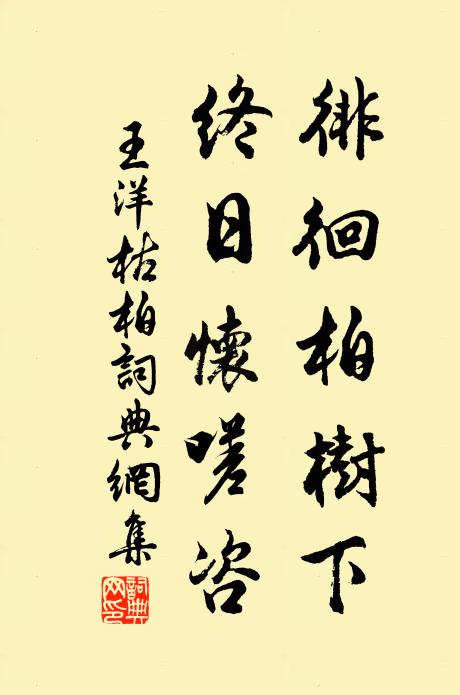 徘徊柏樹下
終日懷嗟咨
王洋枯柏詞典網集
詞典網印